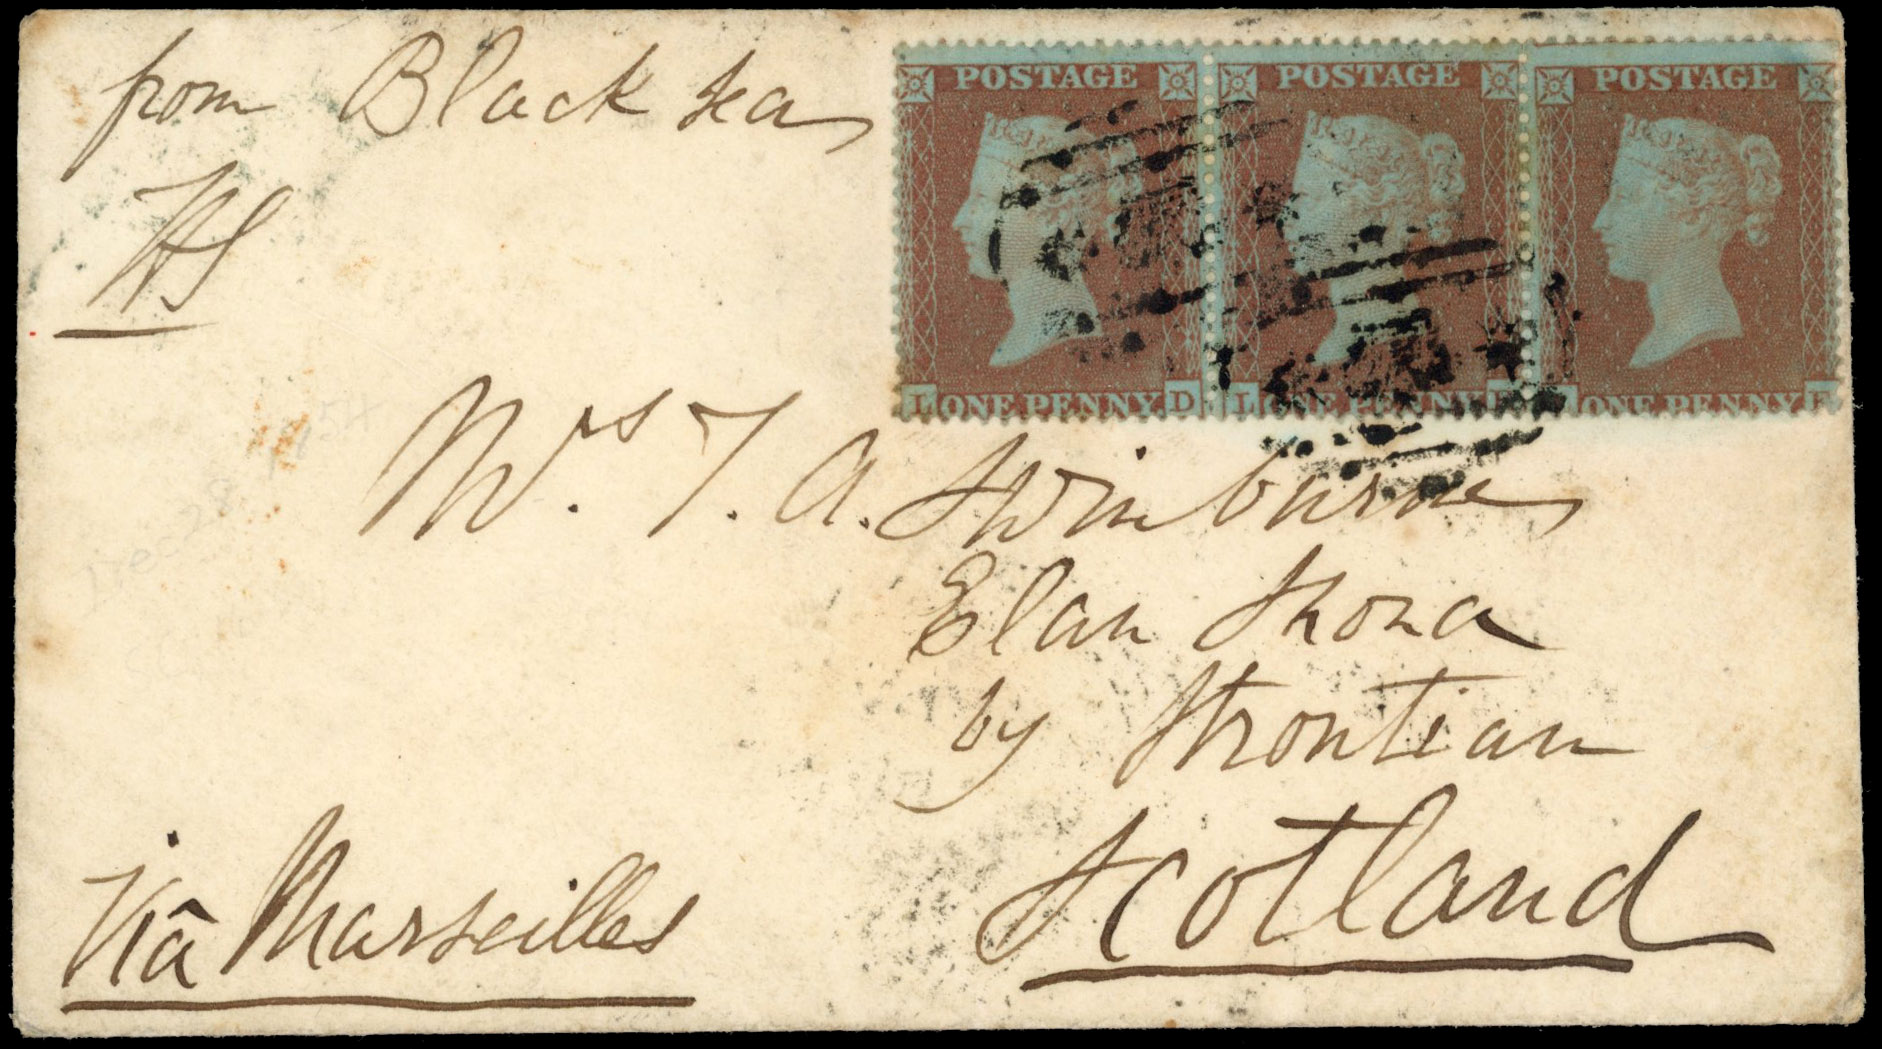 from Black Sea
POSTAGE POSTAGE POSTAGE
L ONE PENNY D L ONE PENNY ONE PENNY F
Mrs T. A. Swinburne
Elan Shona
by Strontian
Scotland
Viâ Marseilles
Dec 28